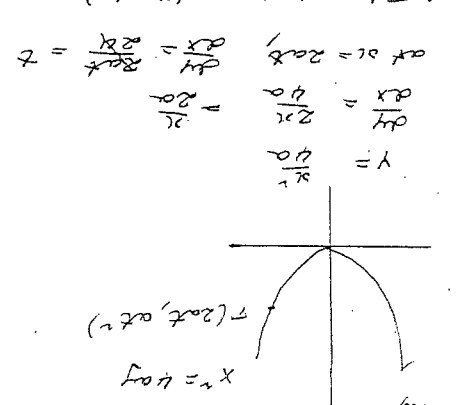 x² = 4ay
T(2at, at²)
y = x²/4a
dy/dx = 2x/4a = x/2a
at x = 2at, dy/dx = 2at/2a = t